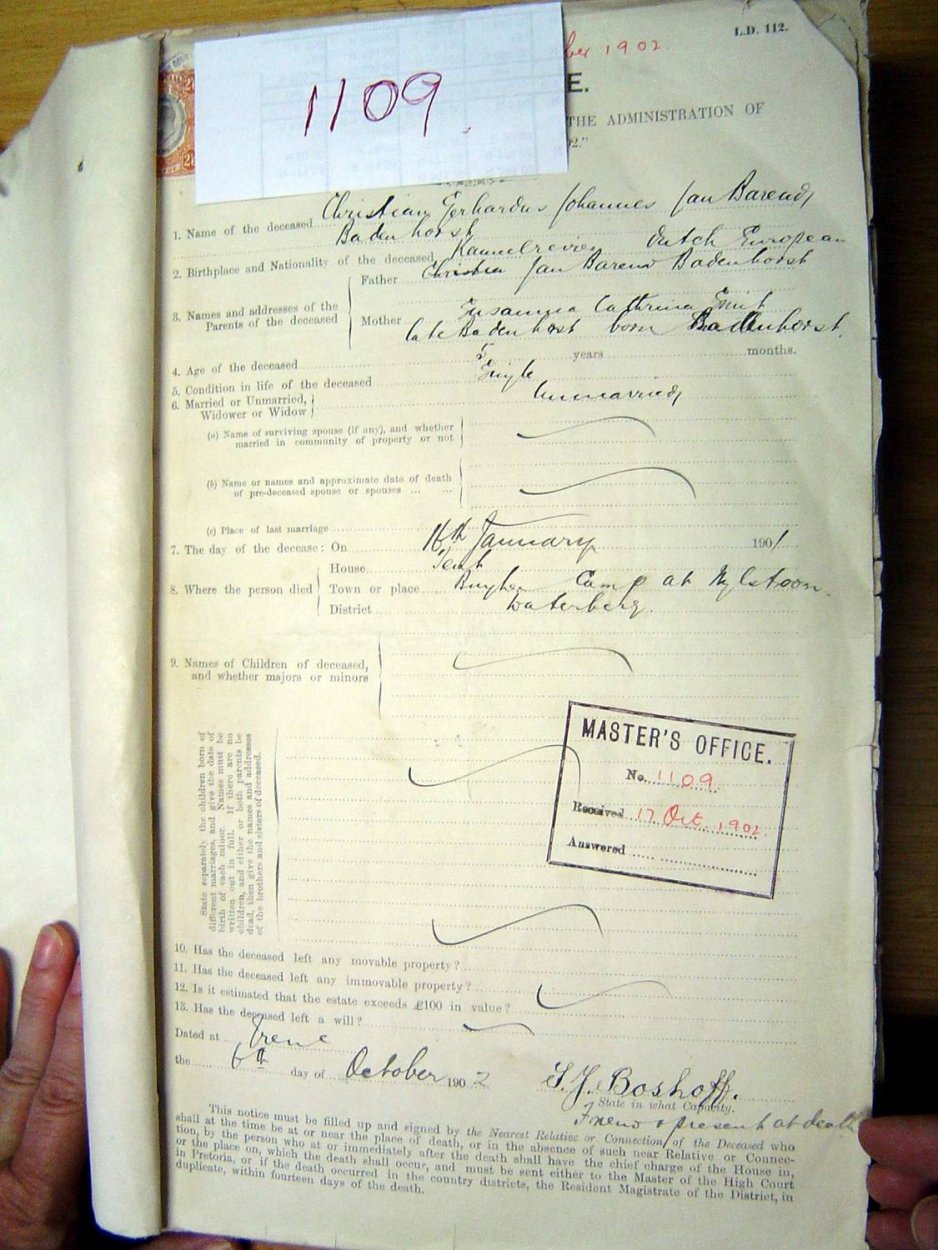 L.D. 112.
ber 1902.
1109
E.
THE ADMINISTRATION OF
02."
1. Name of the deceased Christian Gerhardus Johannes Jan Barend
Badenhorst
2. Birthplace and Nationality of the deceased Dutch European
3. Names and addresses of the Parents of the deceased
Father Jan Barend Badenhorst
Mother Cathrina Smit
late Badenhorst born Badenhorst.
4. Age of the deceased 5 years months.
5. Condition in life of the deceased Single
6. Married or Unmarried, Widower or Widow Unmarried
(a) Name of surviving spouse (if any), and whether
married in community of property or not
(b) Name or names and approximate date of death
of pre-deceased spouse or spouses ... ...
(c) Place of last marriage
7. The day of the decease: On 16th January 1901
8. Where the person died
House Tent
Town or place Burgher Camp at Nylstoom.
District Waterberg.
9. Names of Children of deceased,
and whether majors or minors
State separately the children born of
different marriages, and give the date of
birth of each minor. Names must be
written out in full. If there are no
children, and either or both parents be
dead, then give the names and addresses
of the brothers and sisters of deceased.
MASTER'S OFFICE.
No. 1109
Received 17 Oct. 1902
Answered
10. Has the deceased left any movable property?
11. Has the deceased left any immovable property?
12. Is it estimated that the estate exceeds £100 in value?
13. Has the deceased left a will?
Dated at Irene
the 6th day of October 1902
S.J. Boshoff.
State in what Capacity.
Friend & present at death
This notice must be filled up and signed by the Nearest Relative or Connection of the Deceased who
shall at the time be at or near the place of death, or in the absence of such near Relative or Connec-
tion, by the person who at or immediately after the death shall have the chief charge of the House in,
or the place on, which the death shall occur, and must be sent either to the Master of the High Court
in Pretoria, or if the death occurred in the country districts, the Resident Magistrate of the District, in
duplicate, within fourteen days of the death.